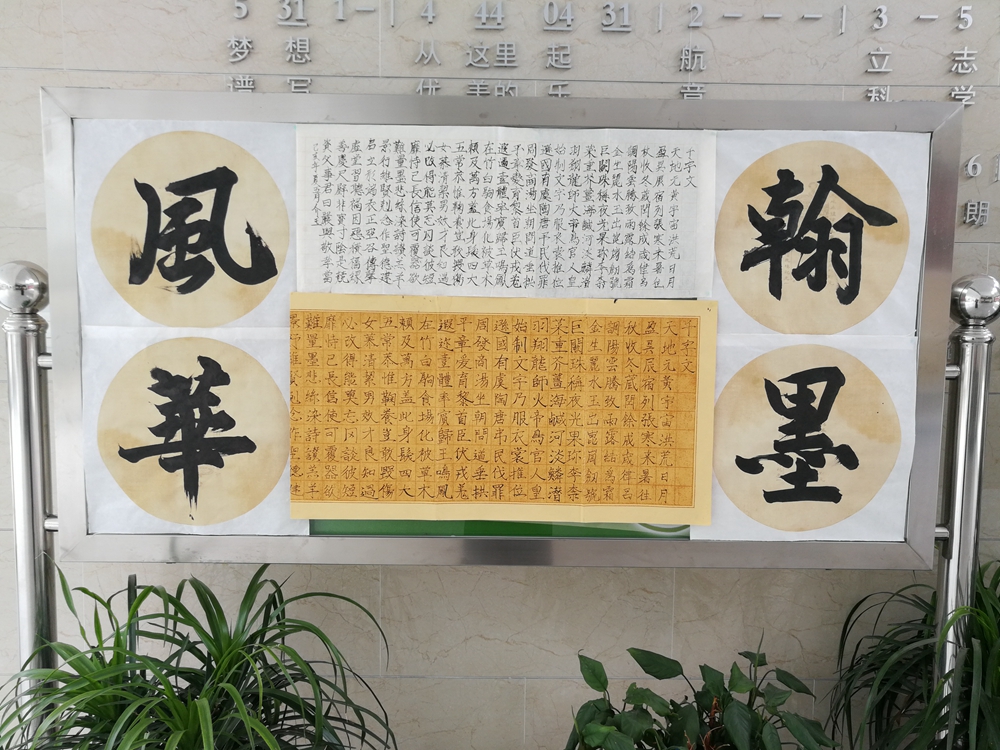 5 31 1— | 4 44 04 31 | 2 — — — | 3 — 5
梦 想 从 这里 起 航 立 志
谱 写 优 美的 乐 章 科 学
6
朗
翰
墨
風
華
千字文
天地元黃宇宙洪荒日月
盈昃辰宿列張寒來暑往
秋收冬藏閏餘成歲律呂
調陽雲騰致雨露結為霜
金生麗水玉出崑崗劍號
巨闕珠稱夜光果珍李柰
菜重芥薑海鹹河淡鱗潛
羽翔龍師火帝鳥官人皇
始制文字乃服衣裳推位
遜國有虞陶唐弔民伐罪
周發商湯坐朝問道垂拱
平章愛育黎首臣伏戎羌
遐邇壹體率賓歸王鳴鳳
在竹白駒食場化被草木
賴及萬方蓋此身髮四大
五常恭惟鞠養豈敢毀傷
女慕清潔男效才良知過
必改得能莫忘罔談彼短
靡恃己長信使可覆器欲
難量墨悲絲染詩讚羔羊
景行維賢剋念作聖德建
名立形端表正空谷傳聲
虛堂習聽禍因惡積福緣
善慶尺璧非寶寸陰是競
資父事君曰嚴與敬孝當
千字文
天地元黃宇宙洪荒日月
盈昃辰宿列張寒來暑往
秋收冬藏閏餘成歲律呂
調陽雲騰致雨露結為霜
金生麗水玉出崑崗劍號
巨闕珠稱夜光果珍李柰
菜重芥薑海鹹河淡鱗潛
羽翔龍師火帝鳥官人皇
始制文字乃服衣裳推位
遜國有虞陶唐弔民伐罪
周發商湯坐朝問道垂拱
平章愛育黎首臣伏戎羌
遐邇壹體率賓歸王鳴鳳
在竹白駒食場化被草木
賴及萬方蓋此身髮四大
五常恭惟鞠養豈敢毀傷
女慕清潔男效才良知過
必改得能莫忘罔談彼短
靡恃己長信使可覆器欲
難量墨悲絲染詩讚羔羊